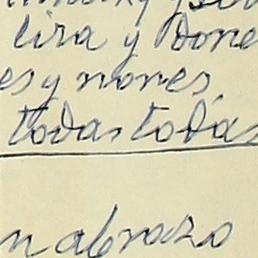 lira y done
es y nores,
todas todas
n abrazo